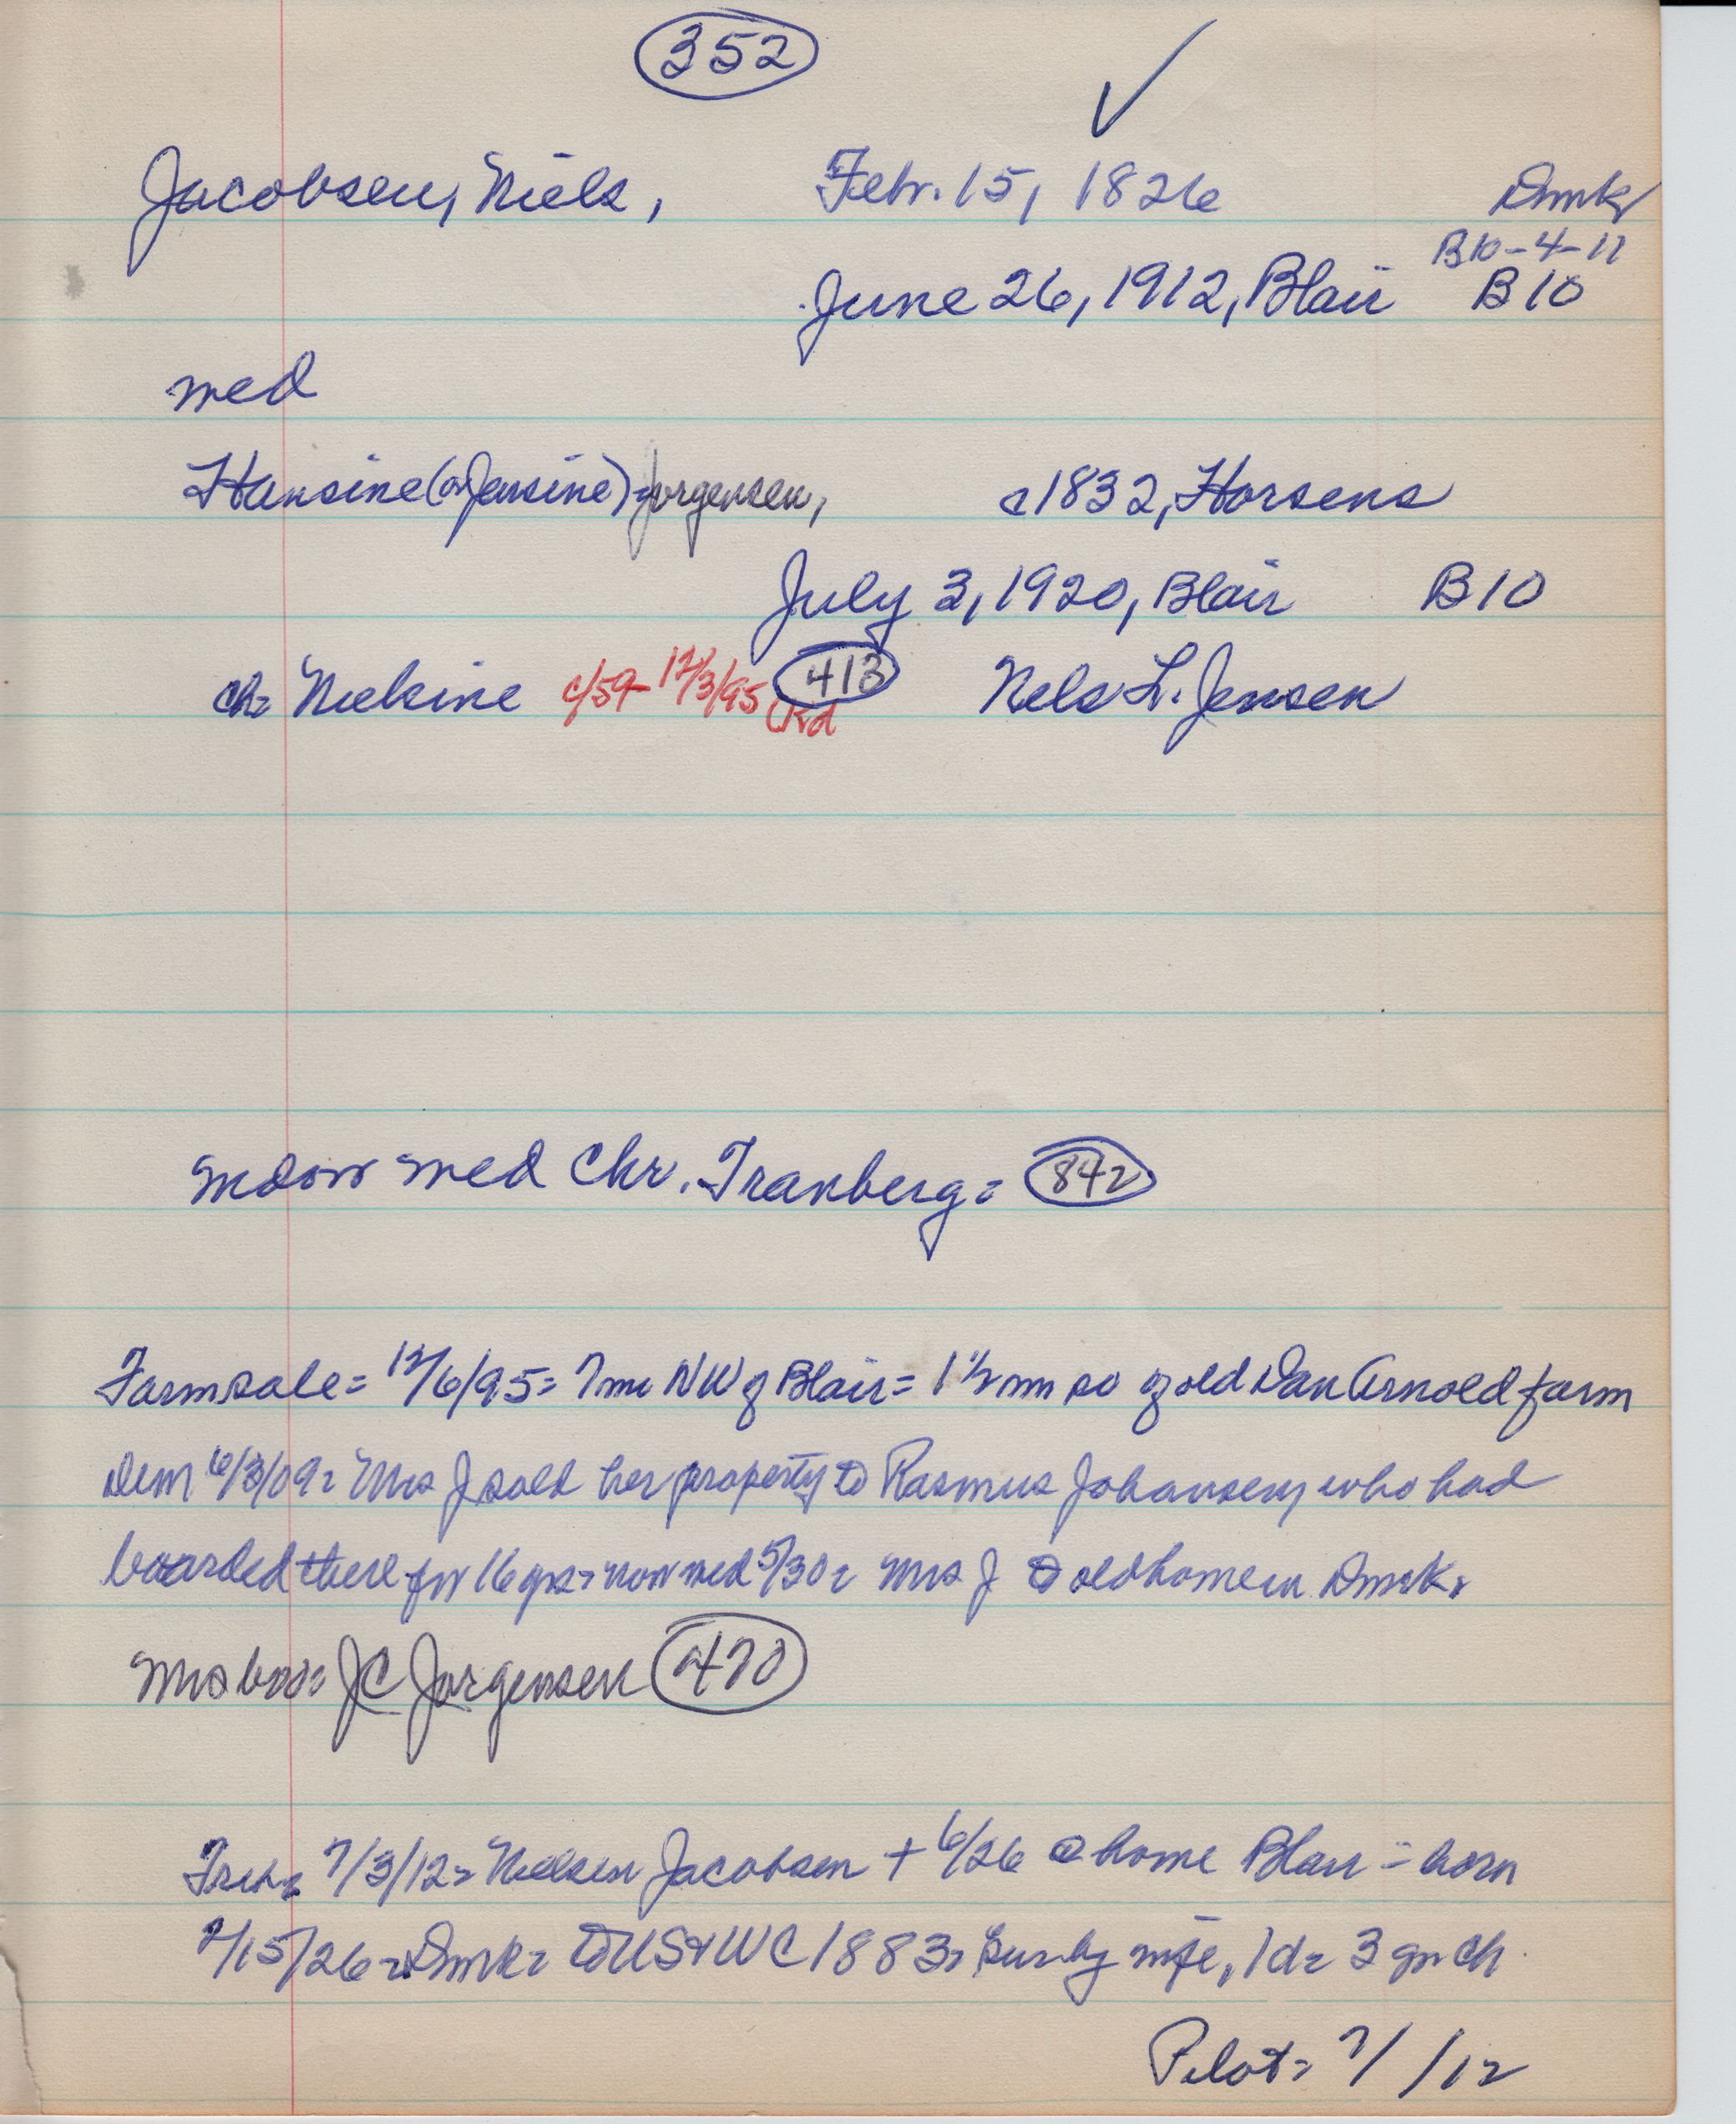 352 ✓
Jacobsen, Niels, Febr. 15, 1826 Dmk
B10-4-11
June 26, 1912, Blair B10
med
Hansine (or Jensine) Jorgensen, c1832, Horsens
July 3, 1920, Blair B10
ch= Nielsine c/59- 12/3/95 413 Nels L. Jensen
Rd
med Chr. Tranberg= 842
Farmsale= 12/6/95= 7 mi NW of Blair= 1 1/2 mi so of old Dan Arnold farm
Dem 6/3/09= Mrs J sold her property to Rasmus Johansen, who had
boarded there for 16 yrs= now med 5/30= Mrs J to old home in Dmrk.
Mrs bro= JC Jorgensen 470
7/3/12= Nielsen Jacobsen + 6/26 @ home Blair = born
2/15/26= Dmrk= to US & WC 1883= Sur by wife, 1 d= 3 gr ch.
Pilot= 7/ /12